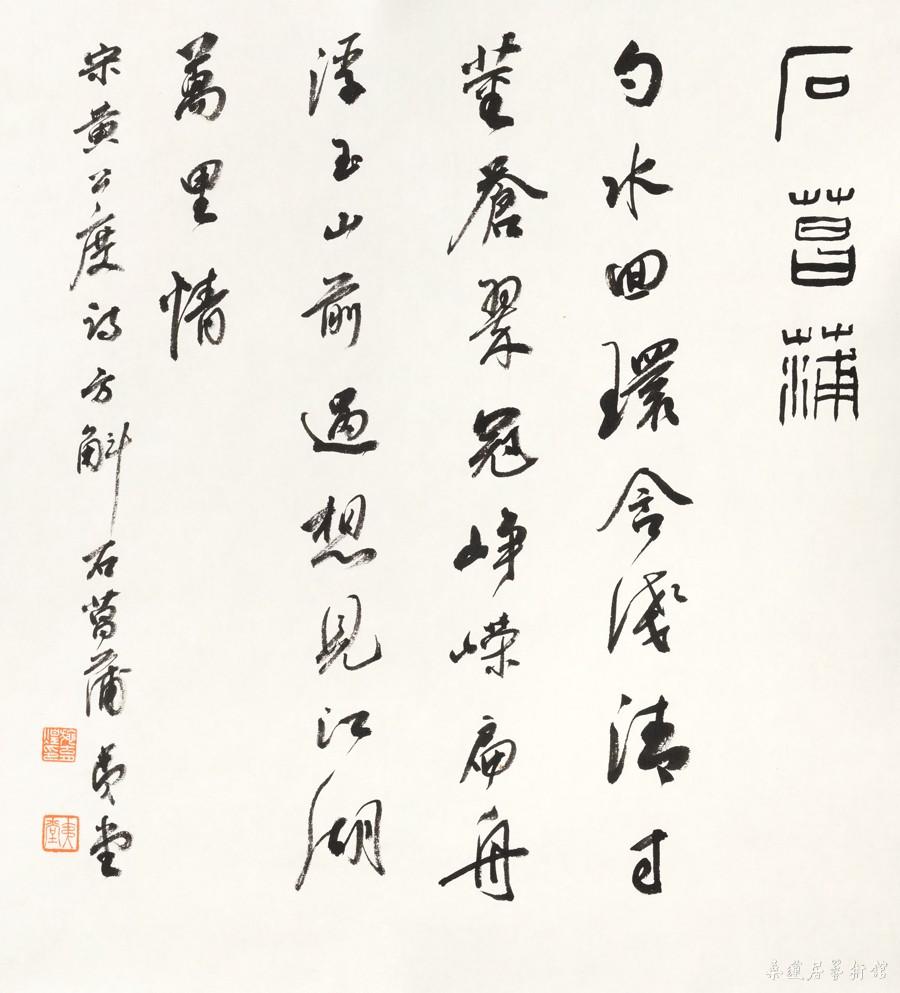 石菖蒲
勺水回環含淺清寸
莖蒼翠冠崢嶸扁舟
浮玉山前過想見江湖
萬里情
宋黃公度詩方斛石菖蒲 夷堂
夷堂
桑蓮居藝術館